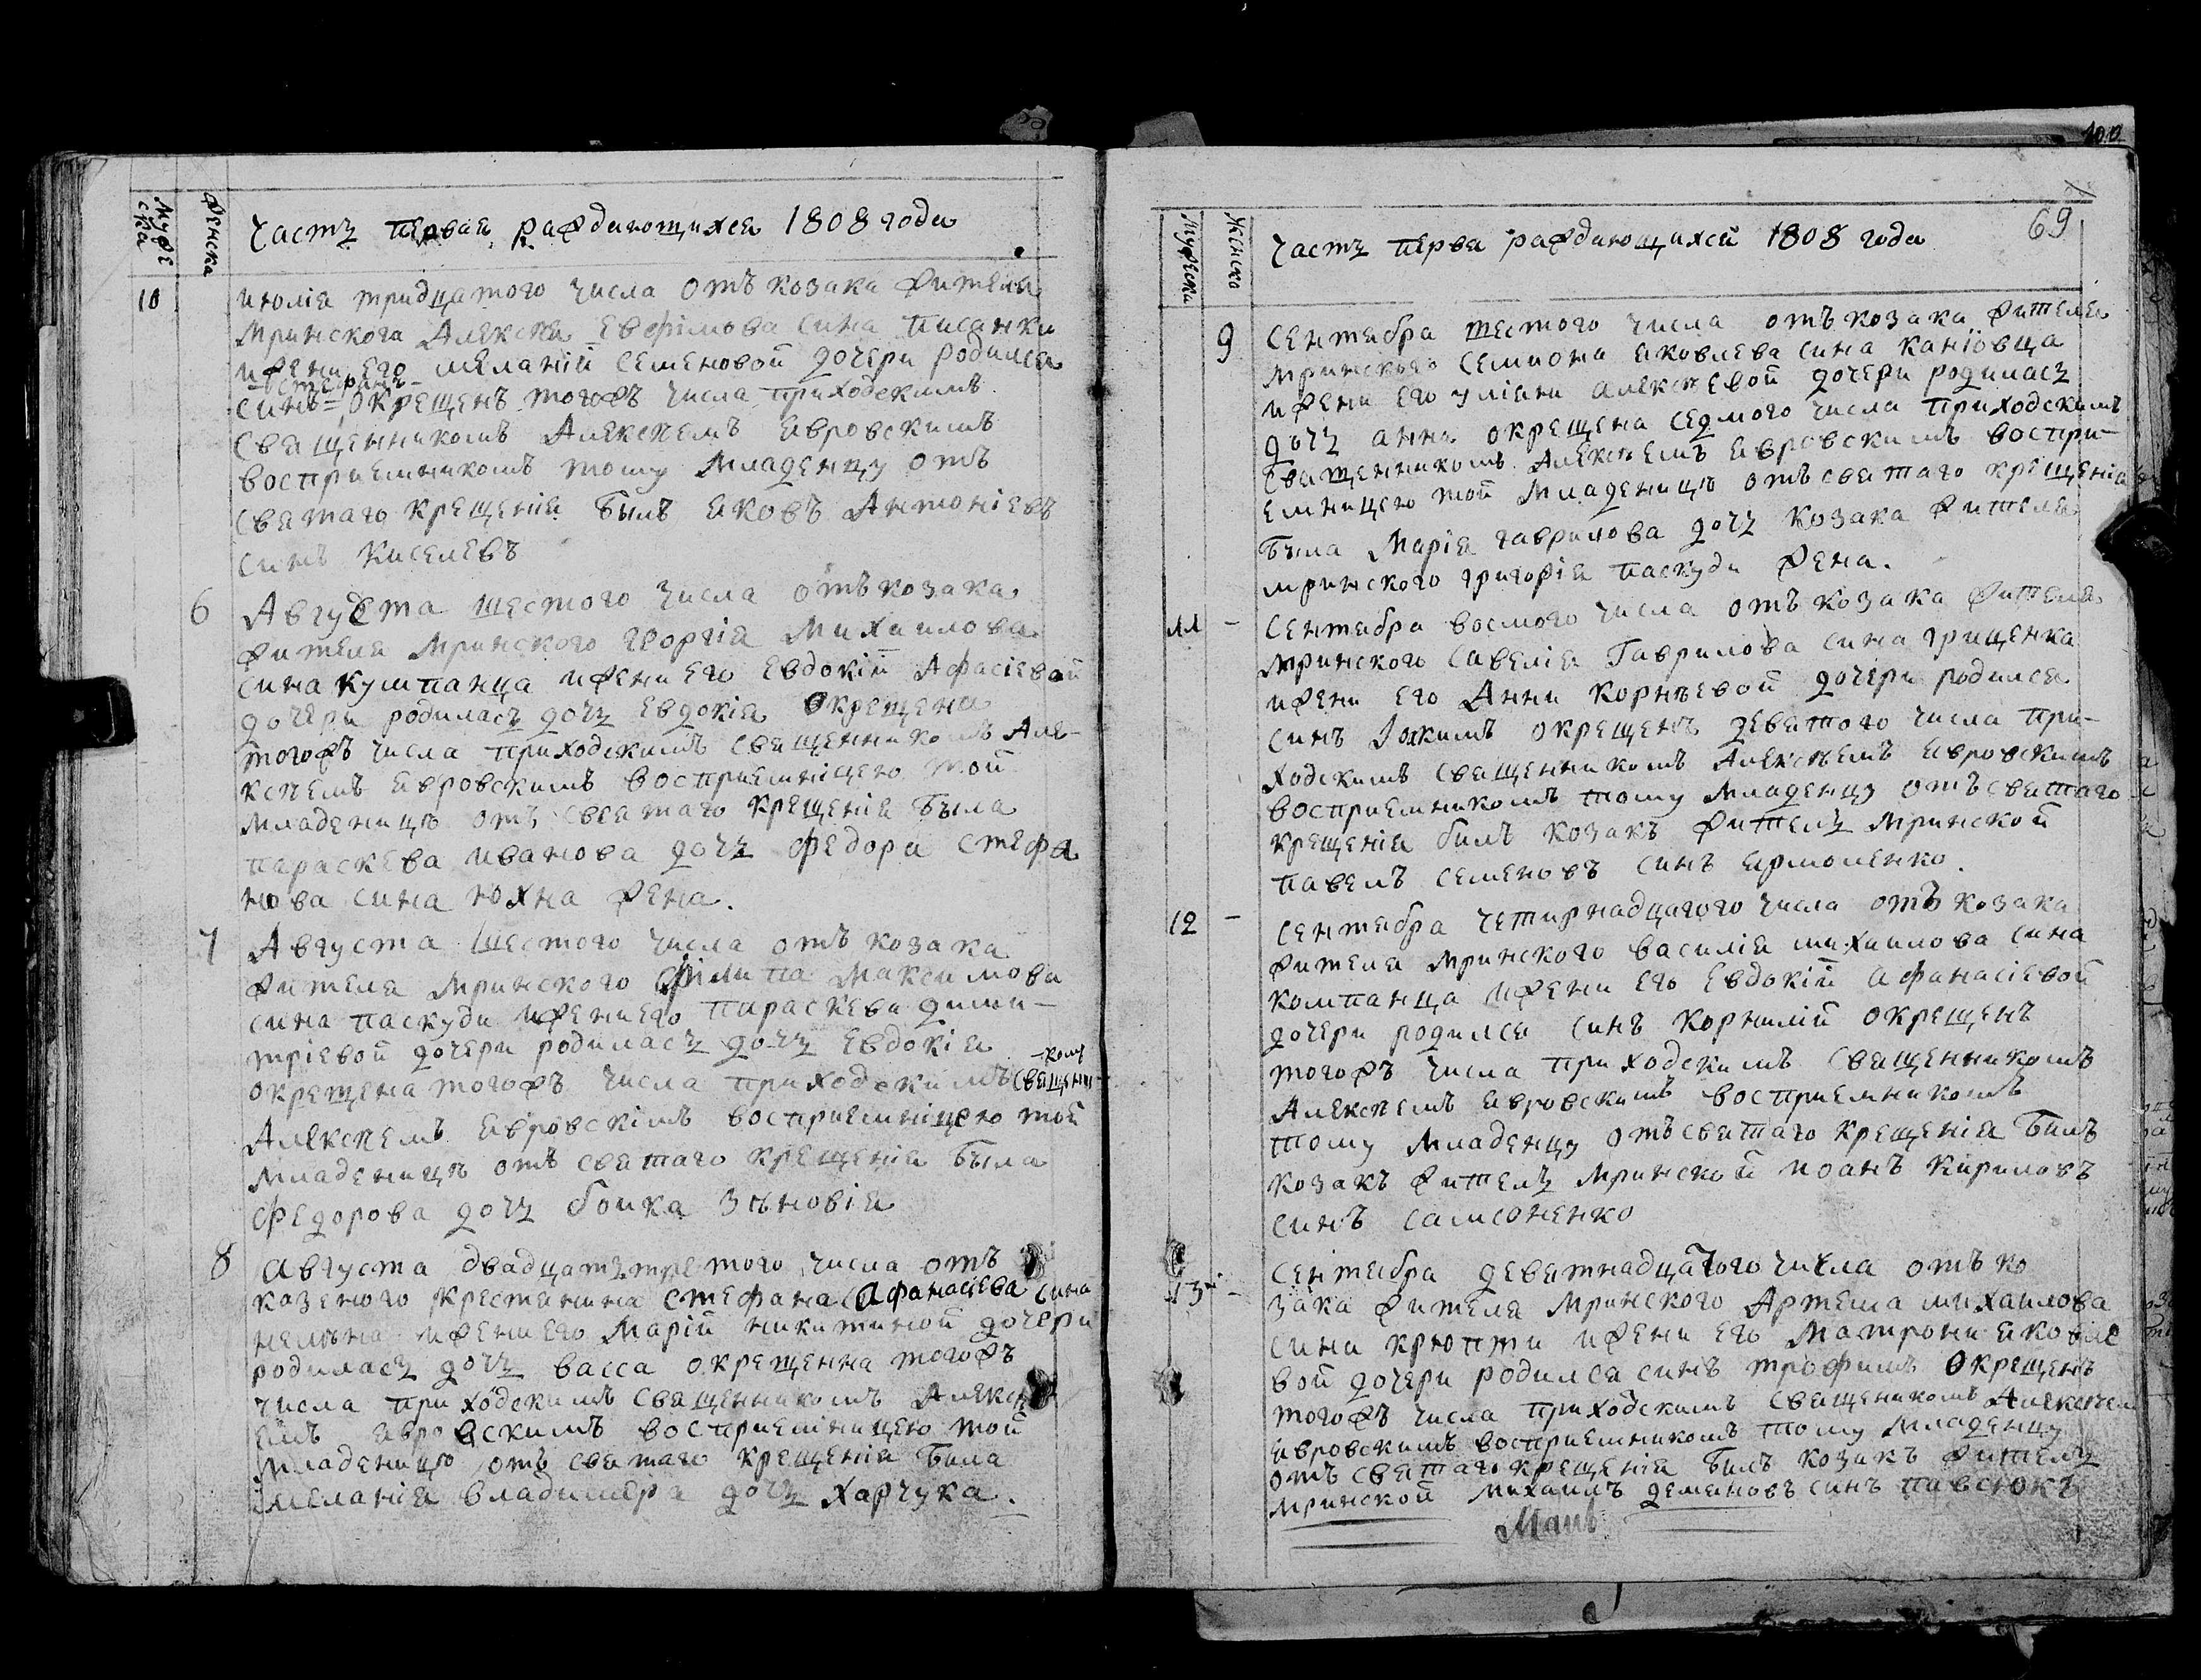 Муже
ска
Женска
Часть первая раждающихся 1808 года
10
июлія тридцатого числа отъ козака жителя
мринского Алексѣя Евфімова сина Писанки
ижени его меланіи Семеновой дочери родился
Стефанъ
синъ окрещенъ тогожъ числа приходскимъ
священникомъ Алексѣемъ Явровскимъ
восприемникомъ тому младенцу отъ
святаго крещенія былъ Яковъ Антоніевъ
синъ Киселевъ
6
Августа шестого числа отъ козака
жителя мринского Георгія Михаилова
сина Кумпанца ижени его Евдокіи Афасіевой
дочери родилась дочь Евдокія окрещена
тогожъ числа приходскимъ священникомъ Але-
ксѣемъ Явровскимъ восприемніцею той
младеницѣ отъ святаго крещенія была
параскева иванова дочь Федора Стефа
нова сина Юхна жена.
7
Августа шестого числа отъ козака
жителя мринского Филипа Максимова
сина Паскуди ижени его параскеви дими-
тріевой дочери родилась дочь Евдокія
-комъ
окрещена тогожъ числа приходскимъ священни-
Алексѣемъ Явровскімъ восприемніцею той
младеницѣ отъ святаго крещенія была
Федорова дочь боика Зѣновія
8
Августа двадцать третого числа отъ
казеного крестянина Стефана Афанасіева сина
ижени его Маріи никитиной дочери
родилась дочь васса окрещенна тогожъ
числа приходскимъ священникомъ Алексѣ
емъ Явровскимъ восприемніцею той
младеницѣ отъ святаго крещенія была
меланія владимера дочь Харчука.
100
69
Мужески
Женско
Часть перва раждающихся 1808 года
9
Сентября шестого числа отъ козака жителя
мринского Семиона Яковлева сина Каніовца
ижени его уліяни алексѣевой дочери родилась
дочь анна окрещена седмого числа приходскимъ
священникомъ Алексѣемъ Явровскимъ воспри-
емницею той младеницѣ отъ святаго крещенія
была Марія гаврилова дочь козака жителя
мринского григорія паскуди жена.
11 -
Сентября восмого числа отъ козака жителя
мринского Савелія Гаврилова сина грищенка
ижени его Анни Корнѣевой дочери родился
синъ Іоакимъ окрещенъ девятого числа при-
ходскимъ священникомъ Алексѣемъ Явровскимъ
восприемникомъ тому младенцу отъ святаго
крещенія билъ козакъ житель мринской
павелъ Семеновъ синъ Ярмоленко.
12 -
Сентября четирнадцатого числа отъ козака
жителя мринского василія михаилова сина
компанца ижени его Евдокіи афанасіевой
дочери родился синъ Корнилій окрещенъ
тогожъ числа приходскимъ священникомъ
Алексѣемъ Явровскимъ восприемникомъ
тому младенцу отъ святаго крещенія билъ
козакъ житель мринской иоанъ Кириловъ
синъ Самсоненко
13 -
Сентября деветнадцатого числа отъ ко
зака жителя мринского Артема михаилова
сина Крюпти ижени его Матрони Яковле
вой дочери родился синъ трофимъ окрещенъ
тогожъ числа приходскимъ священикомъ Алексѣем
Явровскимъ восприемникомъ тому младенцу
отъ святаго крещенія билъ козакъ житель
мринской михаилъ демяновъ синъ павсюкъ